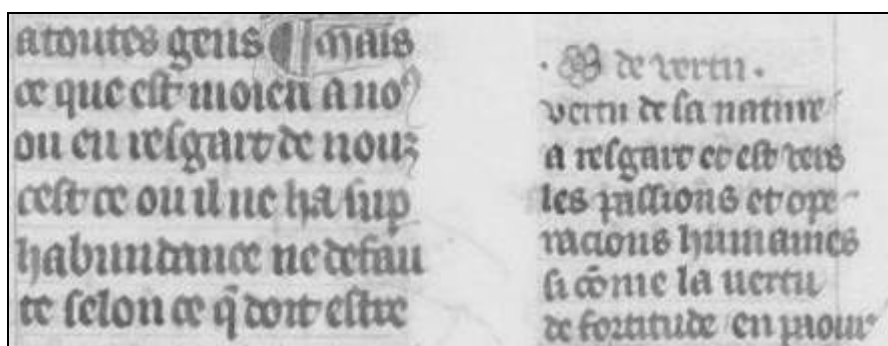 a toutes gens ¶ mais
ce que est moien a noꝰ
ou en resgart de nouz
cest ce ou il ne ha sup
habundance ne defau
te selon ce q̄ doit estre
. de vertu .
vertu de sa nature
a resgart et est vers
les passions et ope
racions humaines
si cōme la uertu
de fortitude en